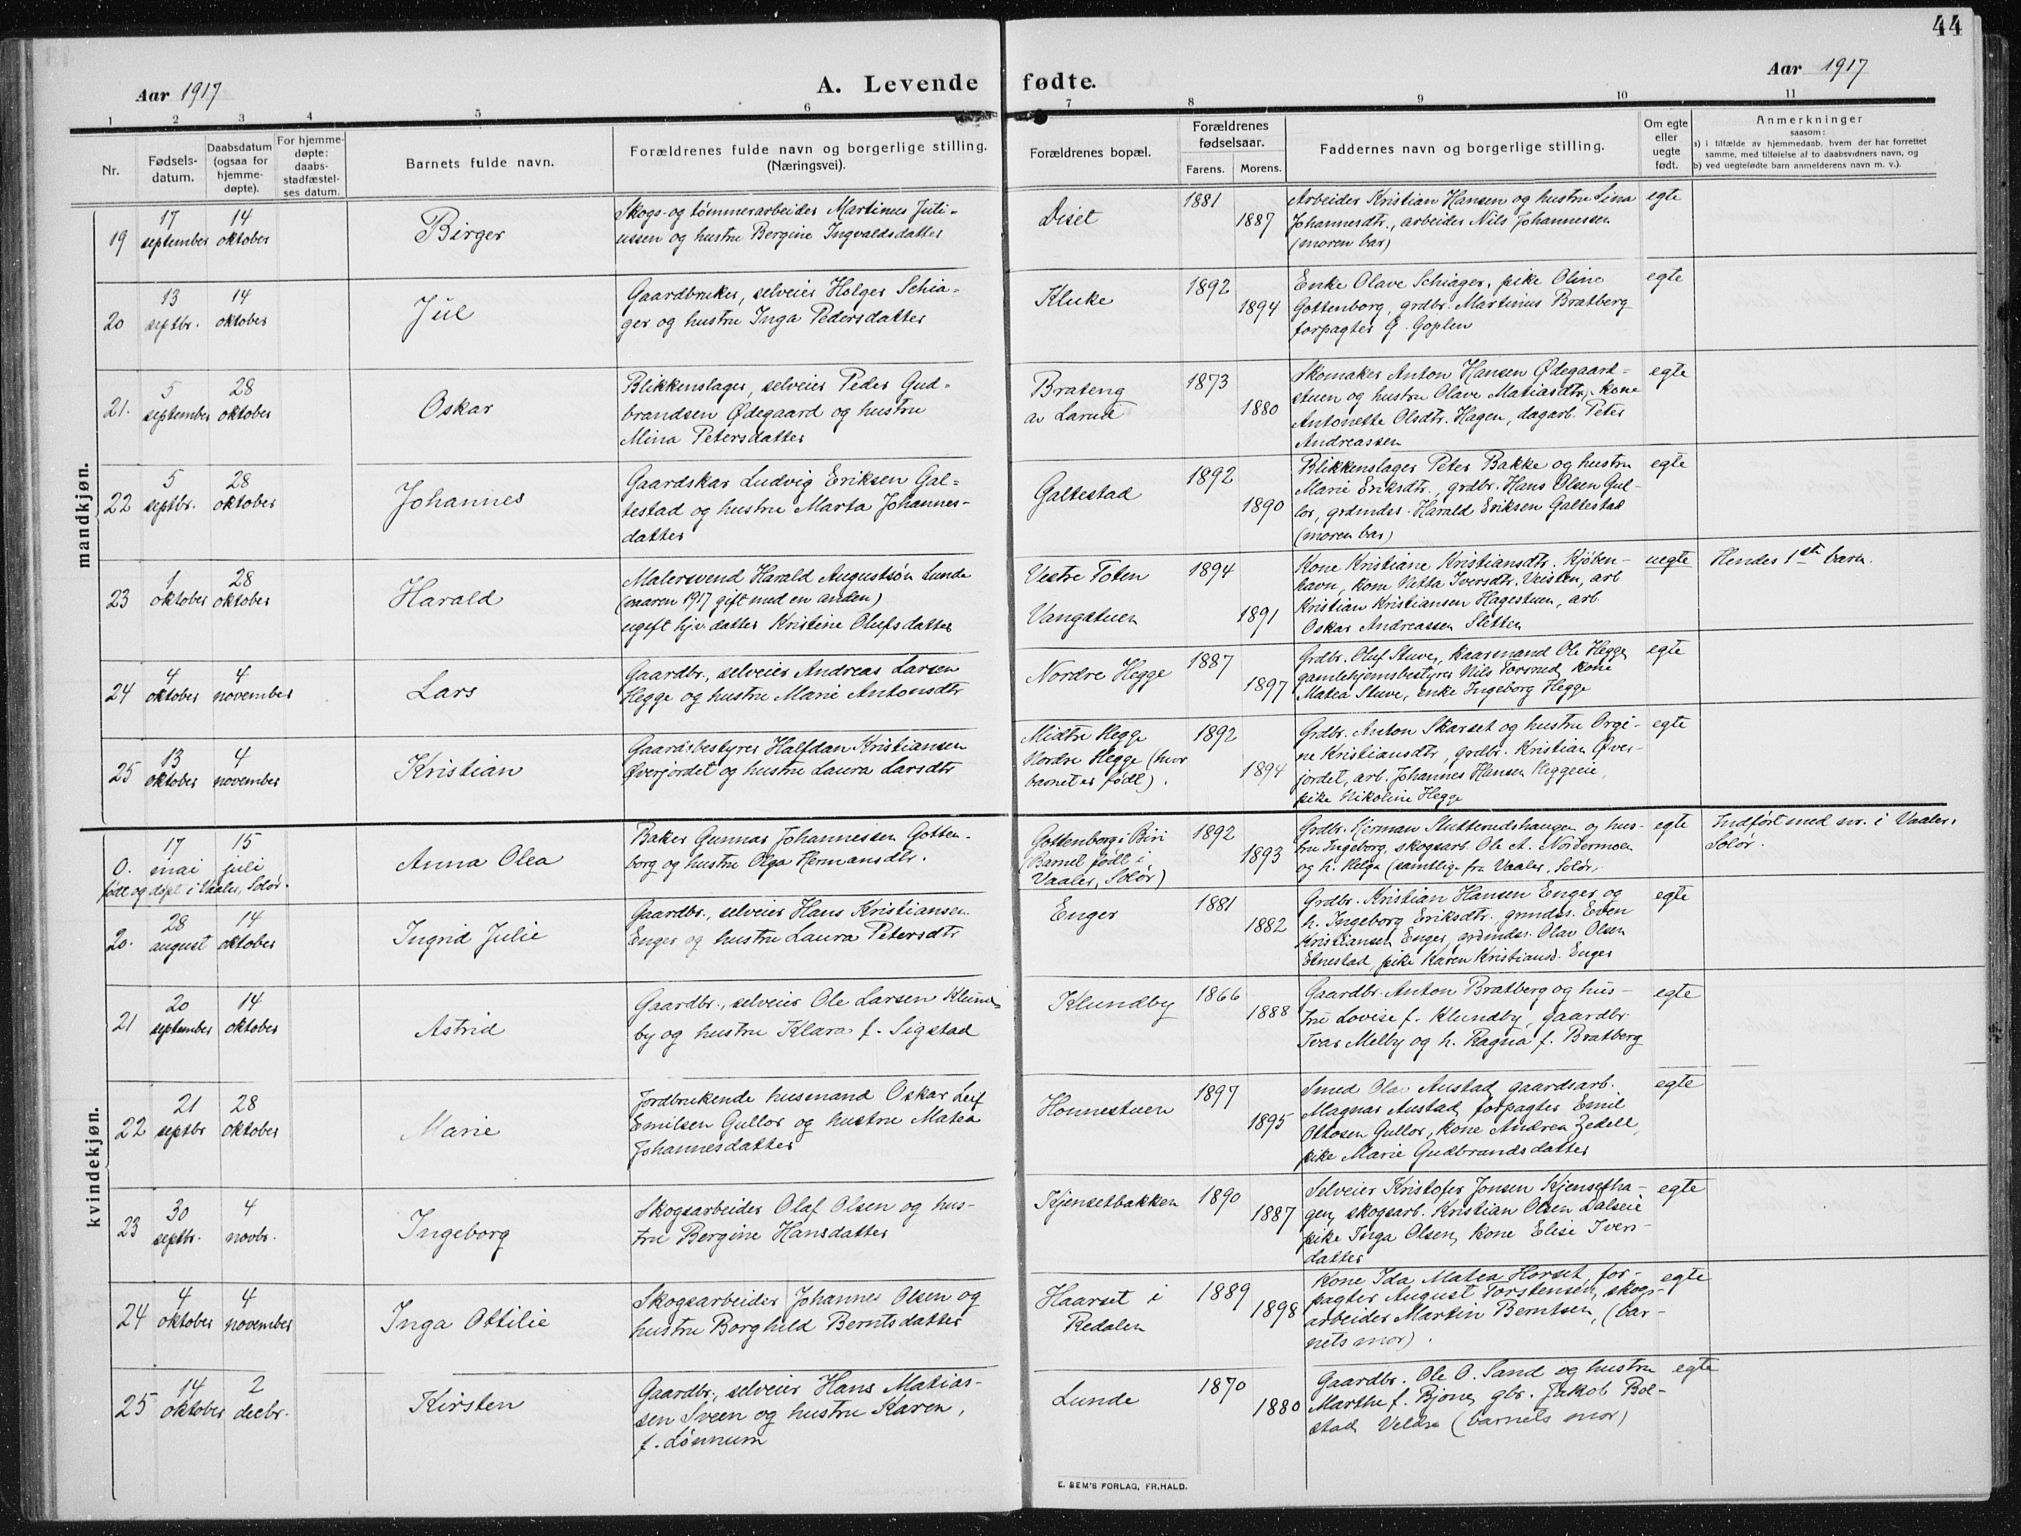 44
Aar 1917
A. Levende fødte.
Aar 1917
1 2 3 4 5 6 7 8 9 10 11
Nr.
Fødsels-
datum.
Daabsdatum
(ogsaa for
hjemme-
døpte).
For hjemme-
døpte:
daabs-
stadfæstel-
ses datum.
Barnets fulde navn.
Forældrenes fulde navn og borgerlige stilling.
(Næringsvei).
Forældrenes bopæl.
Forældrenes
fødselsaar.
Farens. Morens.
Faddernes navn og borgerlige stilling.
Om egte
eller
uegte
født.
Anmerkninger
saasom:
a) i tilfælde av hjemmedaab, hvem der har forrettet
samme, med tilføielse af to daabsvidners navn, og
b) ved uegtefødte barn anmelderens navn m. v.).
mandkjøn.
19
17
september
14
oktober
Birger
Skogs- og tømmerarbeider Martinus Juli-
ussen og hustru Bergine Ingvaldsdatter
Diset
1881
1887
Arbeider Kristian Hansen og hustru Lina
Johannesdtr., arbeider Nils Johannessen
(moren bar)
egte
20
13
septbr.
14
oktober
Jul
Gaardbruker, selveier Holger Schia-
ger og hustru Inga Pedersdatter
Kluke
1892
1894
Enke Olave Schiager, pike Oline
Gottenborg, grdbr. Martinus Bratberg
forpagter G. Goplen
egte
21.
5
september
28
oktober
Oskar
Blikkenslager, selveier Peder Gud-
brandsen Ødegaard og hustru
Mina Petersdatter
Brateng
av Larud
1873
1880
Skomaker Anton Hansen Ødegaard-
stuen og hustru Olave Matiasdtr., kone
Antonette Olsdtr. Hagen, dagarb. Peter
Andreassen
egte
22
5
septbr.
28
oktober
Johannes
Gaardskar Ludvig Eriksen Gal-
testad og hustru Marta Johannes-
datter
Galtestad
1892
1890
Blikkenslager Peter Bakke og hustru
Marie Eriksdtr., grdbr. Hans Olsen Gul-
lor, grdmdsr. Harald Eriksen Galtestad
(moren bar)
egte
23
1
oktober
28
oktober
Harald
Malersvend Harald Augustsøn Lunde
(vaaren 1917 gift med en anden)
ugift hjv. datter Kristine Olufsdatter
Vestre Toten
Vangstuen
1894
1891
Kone Kristiane Kristiansdtr. Kjøben-
havn, kone Netta Iversdtr. Veisten, arb
Kristian Kristiansen Hagestuen, arb.
Oskar Andreassen Sletten
uegte
Hendes 1ste barn.
24
4
oktober
4
november
Lars
Gaardbr., selveier Andreas Larsen
Hegge og hustru Marie Antonsdtr
Nordre Hegge
1887
1897
Grdbr. Oluf Stuve, kaarmand Ole Hegge,
gamlehjemsbestyrer Nils Torsrud, kone
Matea Stuve, enke Ingeborg Hegge
egte
25
13
oktober
4
november
Kristian
Gaardsbestyrer Halfdan Kristiansen
Øverjordet og hustru Laura Larsdtr
Midtre Hegge
Nordre Hegge (hvor
barnet er født).
1892
1894
Grdbr. Anton Skarset og hustru Orgi-
ne Kristiansdtr, grdbr. Kristian Øver-
jordet, arb. Johannes Hansen Heggeeie,
pike Nikoline Hegge
egte
kvindekjøn.
0.
17
mai
15
juli
født og døpt i Vaaler, Solør.
Anna Olea
Baker Gunnar Johannessen Gotten-
borg og hustru Olga Hermansdtr.
Gottenborg i Biri
(Barnet født i
Vaaler, Solør)
1892
1893
Grdbr. Herman Slutterudshaugen og hus-
tru Ingeborg, skogsarb Ole A. Nordermoen
og h. Helga (samtlige fra Vaaler, Solør.
egte
Indført med nr. i Vaaler,
Solør.
20.
28
august
14
oktober
Ingrid Julie
Gaardbr., selveier Hans Kristiansen
Enger og hustru Laura Petersdtr
Enger
1881
1882
Grdbr. Kristian Hansen Enger og
h. Ingeborg Eriksdtr., grmdsr. Even
Kristiansen Enger, grdmdsr. Olav Olsen
Elnestad, pike Karen Kristiansd. Enger
egte
21
20
september
14
oktober
Astrid
Gaardbr., selveier Ole Larsen Klund-
by og hustru Klara f. Sigstad
Klundby
1866
1888
Gaardbr. Anton Bratberg og hus-
tru Lovise f. Klundby, gaardbr
Ivar Melby og h. Ragna f. Bratberg
egte
22
21
septbr
28
oktober
Marie
Jordbrukende husmand Oskar Leif
Emilsen Gullor og hustru Matea
Johannesdatter
Honnestuen
1897
1895
Smed Ola Austad, gaardsarb.
Magnar Austad, forpagter Emil
Ottosen Gullor, kone Andrea Zedell,
pike Marie Gudbrandsdatter
egte
23
30
septbr.
4
novbr.
Ingeborg
Skogsarbeider Olaf Olsen og hus-
tru Bergine Hansdatter
Kjensetbakken
1890
1887
Selveier Kristofer Jonsen Kjensetha-
gen, skogsarb. Kristian Olsen Dalseie
pike Inga Olsen, kone Elise Iver-
datter
egte
24
4
oktober
4
november
Inga Ottilie
Skogsarbeider Johannes Olsen og
hustru Borghild Berntsdatter
Haarset i
Redalen
1889
1898
Kone Ida Matea Horset, for-
pagter August Torstensen, skogs-
arbeider Martin Berntsen, (bar-
nets mor).
egte
25
14
oktober
2
decbr.
Kirsten
Gaardbr., selveier Hans Matias-
sen Sveen og hustru Karen,
f. Lønnum
Lunde
1870
1880
Gaardbr. Ole O. Sand og hustru
Marthe f. Bjone, gbr. Jakob Bol-
stad Veldre (barnets mor)
egte
E. SEM'S FORLAG, FR.HALD.